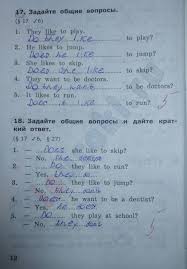 17. Задайте общие вопросы.
(§ 17 √ 6)
1. They like to play.
Do they like to play?
2. He likes to jump.
Does he like to jump?
3. She likes to skip.
Does she like to skip?
4. They want to be doctors.
Do they want to be doctors?
5. It likes to run.
Does it like to run?
5
18. Задайте общие вопросы и дайте краткий ответ.
(§ 17 √ 6, § 27)
1. – Does she like to skip?
– No, she
2. – Do they like to run?
– Yes, they
3. – Do they like to jump?
– No, they
4. – he want to be a dentist?
– Yes, he does
5. – Do they play at school?
– No,
5
12